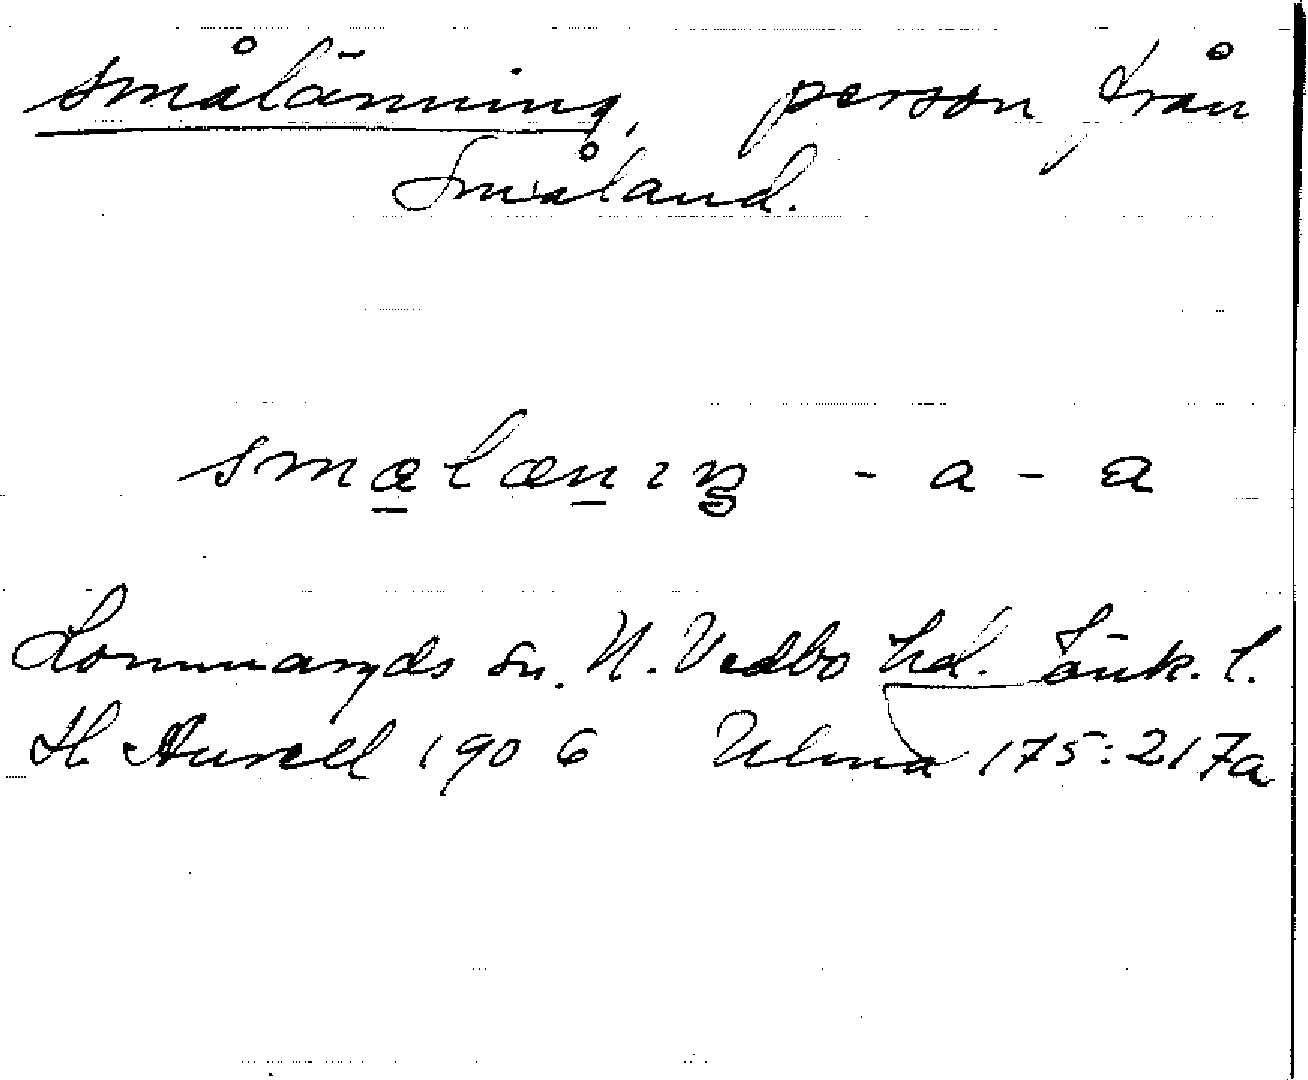 smålänning, person från
Småland.
smalænıŋ - a - a
Lommaryds sn. N. Vedbo hd. Jönk. l.
H. Aurell 1906 Ulma 175:217a